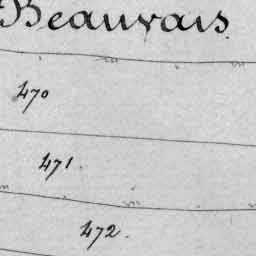 Beauvais
470
471.
472.